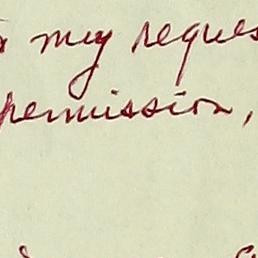 my reques
permission,